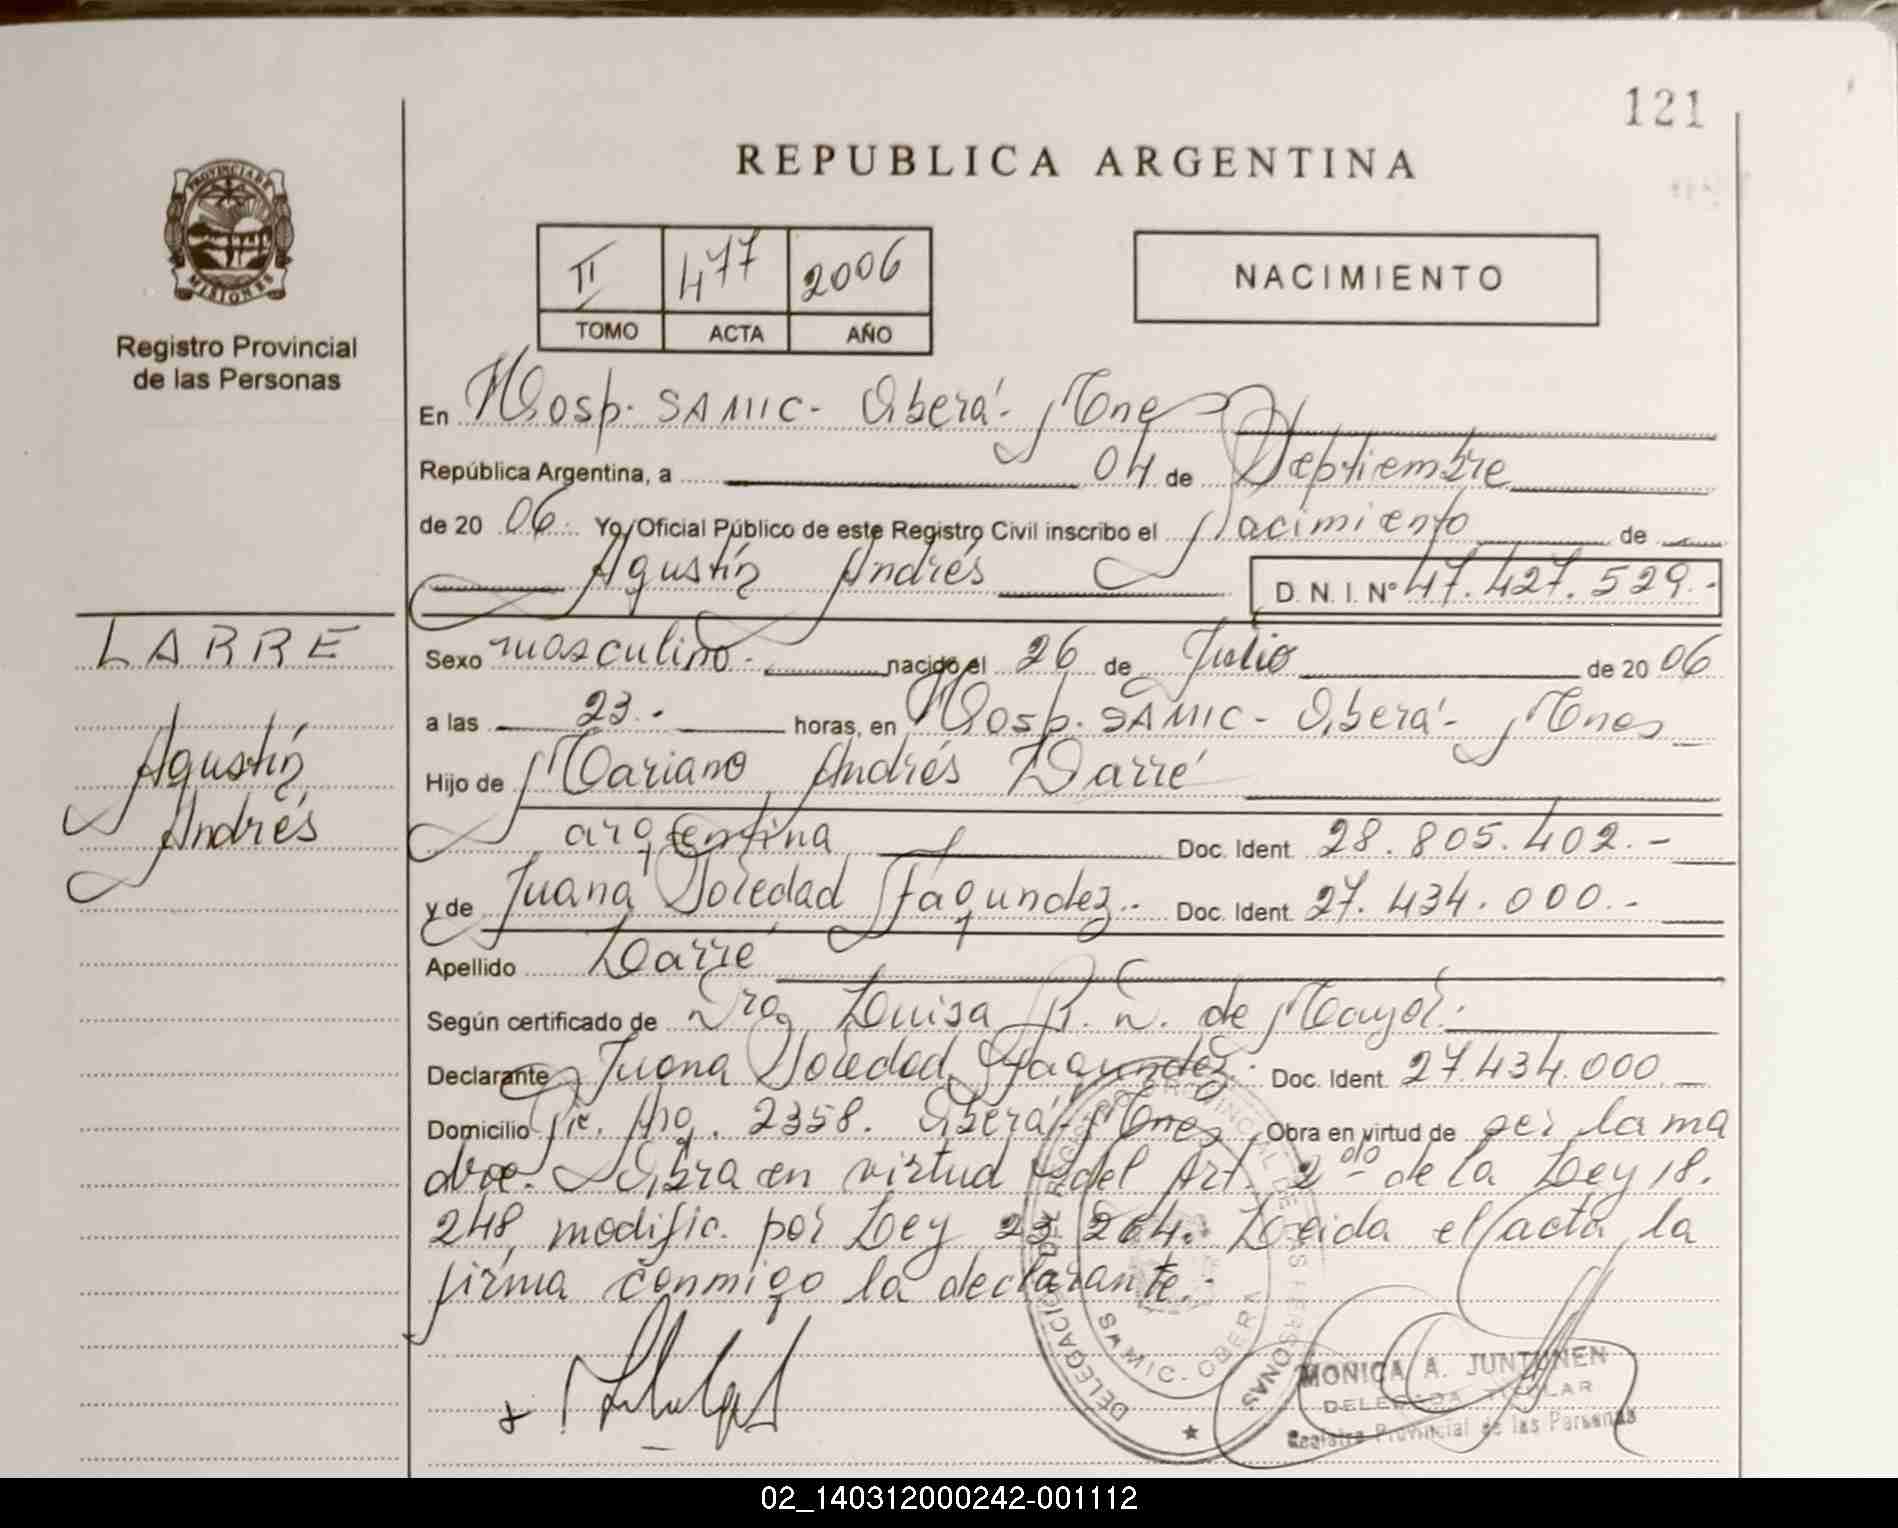 121
REPUBLICA ARGENTINA
PROVINCIA DE
MISIONES
Registro Provincial
de las Personas
II 477 2006
TOMO ACTA AÑO
NACIMIENTO
En Hosp. SAMIC - Oberá - Mnes
República Argentina, a 04 de Septiembre
de 20 06. Yo, Oficial Público de este Registro Civil inscribo el Nacimiento de
Agustín Andrés D. N. I. Nº 47.427.529.-
LARRE
Agustín
Andrés
Sexo masculino.- nacido el 26 de Julio de 20 06
a las 23.- horas, en Hosp. SAMIC - Oberá - Mnes
Hijo de Mariano Andrés Larré
argentina Doc. Ident. 28.805.402.-
y de Juana Soledad Fagundez.- Doc. Ident. 27.434.000.-
Apellido Larré
Según certificado de Dra. Luisa R. N. de Mayol.-
Declarante Juana Soledad Fagundez.- Doc. Ident. 27.434.000
Domicilio Pic. 2358. Oberá - Mnes Obra en virtud de ser la ma
dre. Obra en virtud del Art. 2º de la Ley 18.
248, modific. por Ley 23.264. Leida el acta, la
firma conmigo la declarante.-
DELEGACION DEL REGISTRO PROVINCIAL DE LAS PERSONAS
SAMIC - OBERA
MONICA A. JUNTUNEN
DELEGADA TITULAR
Registro Provincial de las Personas
02_140312000242-001112